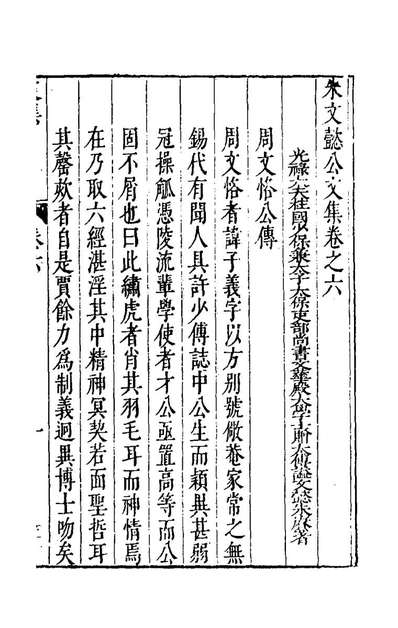 朱文懿公文集卷之六
光祿大夫柱國少保兼太子太保吏部尚書文華殿大學士贈太傅謚文懿朱賡著
周文恪公傳
周文恪者諱子義字以方別號儆菴家常之無
錫代有聞人具許少傅誌中公生而穎異甚弱
冠操觚憑陵流輩學使者才公亟置高等而公
固不屑也曰此繡虎者肖其羽毛耳而神情焉
在乃取六經湛淫其中精神冥契若面聖哲耳
其謦欬者自是賈餘力為制義迥異博士吻矣
卷六
一